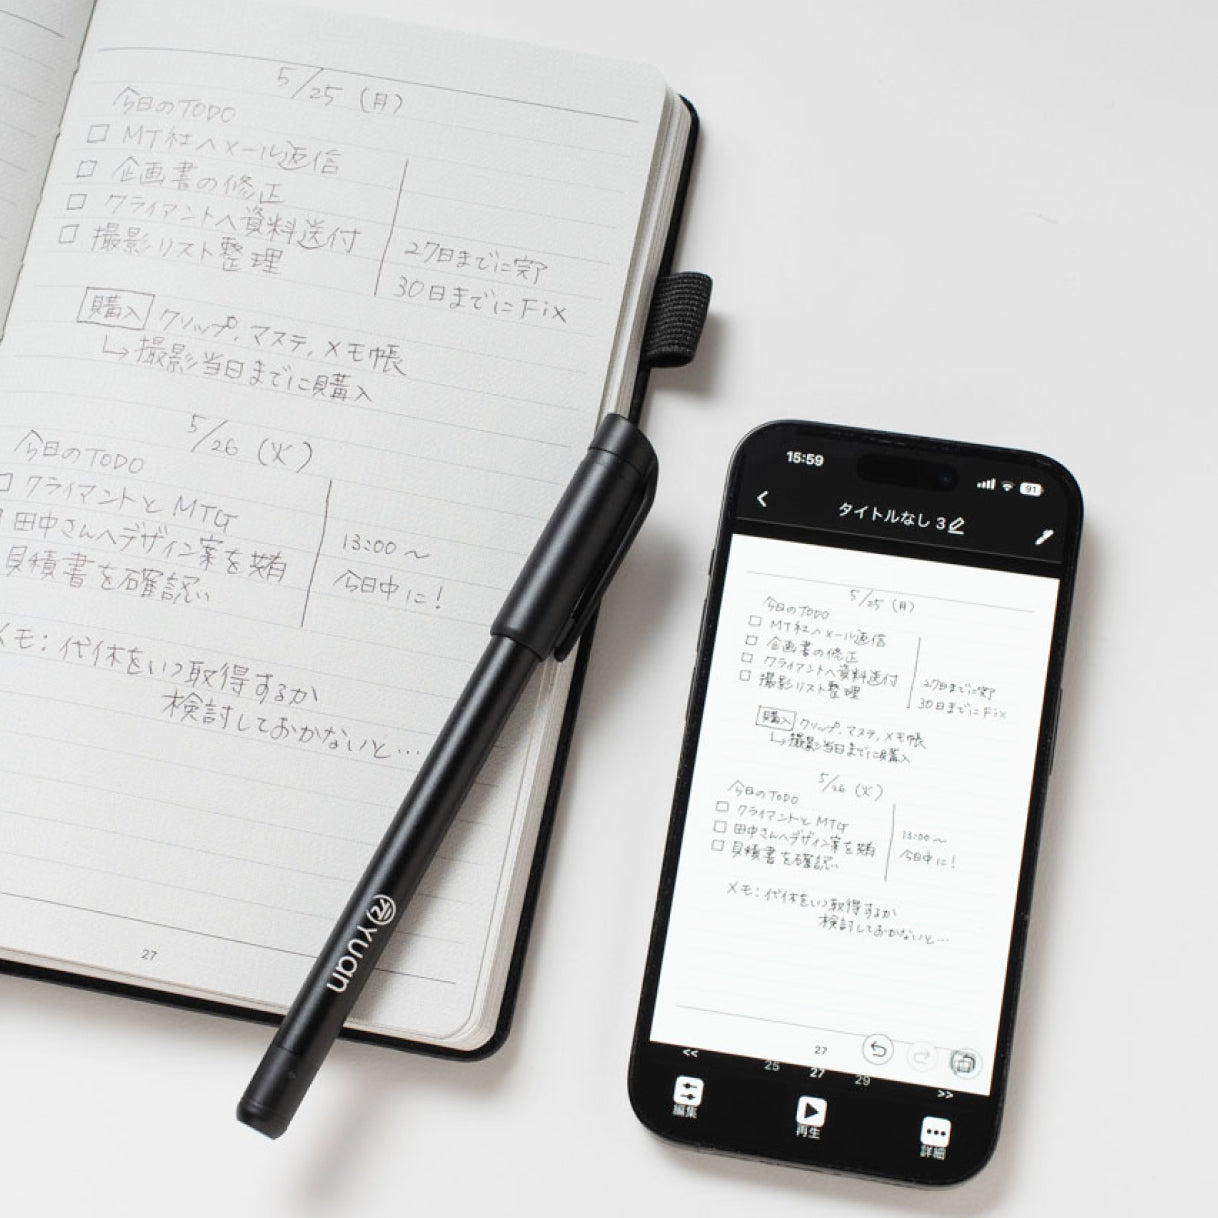 5/25(月)
今日のTODO
□ MT社へメール返信
□ 企画書の修正
□ クライアントへ資料送付 27日までに完了
□ 撮影リスト整理 30日までにFix
購入 クリップ、マステ、メモ帳
↳ 撮影当日までに購入
5/26(火)
今日のTODO
□ クライアントとMTG 13:00〜
田中さんへデザイン案を共有 今日中に!
見積書を確認
メモ:代休をいつ取得するか
検討しておかないと…
27
Yuan
15:59
91
タイトルなし 3
5/25(月)
今日のTODO
□ MT社へメール返信
□ 企画書の修正
□ クライアントへ資料送付 27日までに完了
□ 撮影リスト整理 30日までにFix
購入 クリップ、マステ、メモ帳
↳ 撮影当日までに購入
5/26(火)
今日のTODO
□ クライアントとMTG 13:00〜
□ 田中さんへデザイン案を共有 今日中に!
□ 見積書を確認
メモ:代休をいつ取得するか
検討しておかないと…
27
<< 25 27 29 >>
編集 再生 詳細